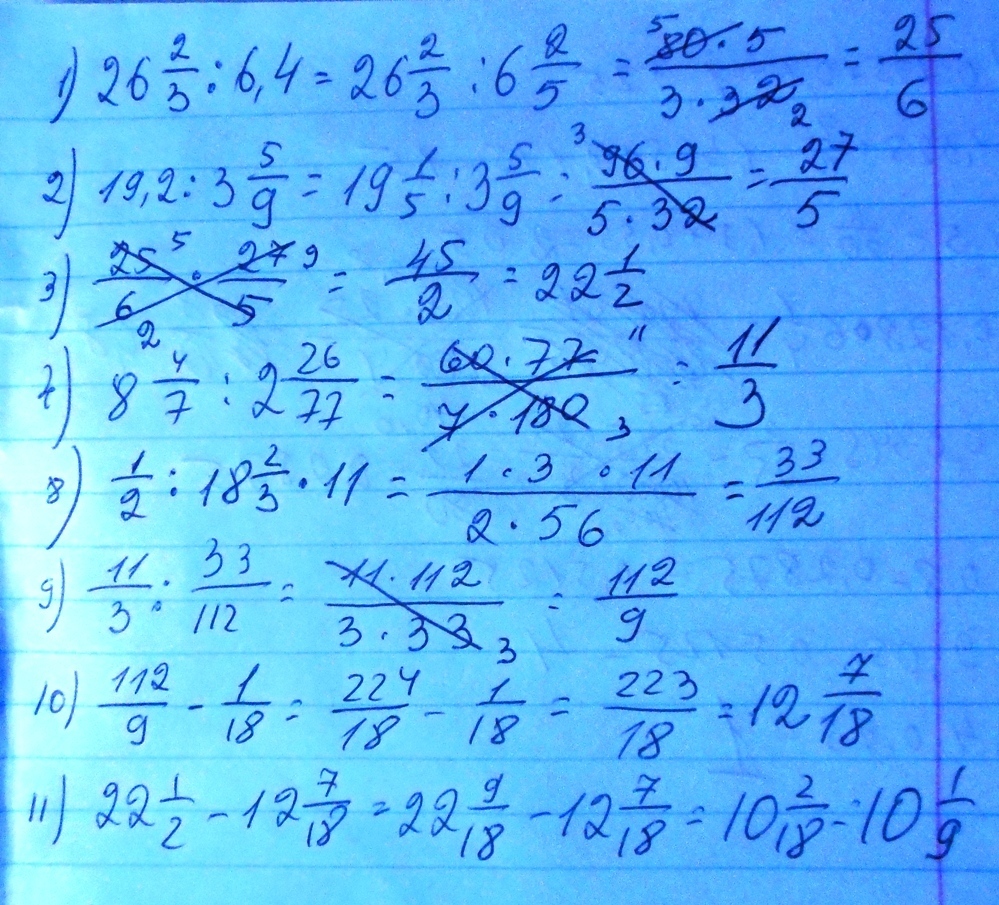 1) 26 2/3 : 6,4 = 26 2/3 : 6 2/5 = 80·5 / 3·32 = 25/6 (5, 2)
2) 19,2 : 3 5/9 = 19 1/5 : 3 5/9 = 96·9 / 5·32 = 27/5 (3)
3) 25/6 · 27/5 = 45/2 = 22 1/2 (5, 9, 2)
7) 8 4/7 : 2 26/77 = 60·77 / 7·180 = 11/3 (11, 3)
8) 1/2 : 18 2/3 · 11 = 1·3·11 / 2·56 = 33/112
9) 11/3 : 33/112 = 11·112 / 3·33 = 112/9 (3)
10) 112/9 - 1/18 = 224/18 - 1/18 = 223/18 = 12 7/18
11) 22 1/2 - 12 7/18 = 22 9/18 - 12 7/18 = 10 2/18 = 10 1/9